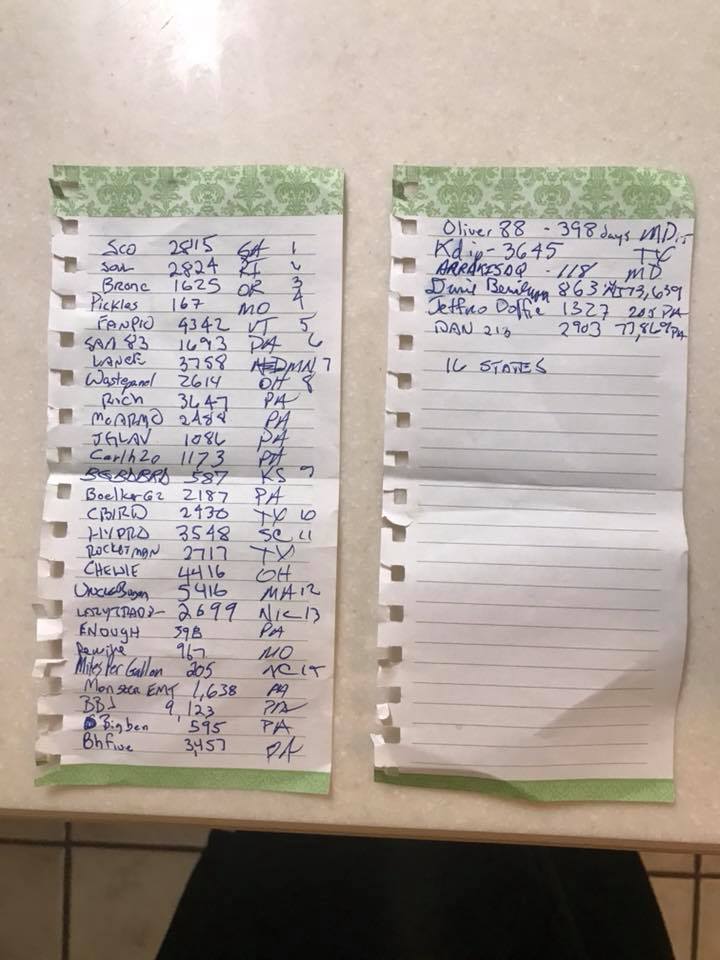 Sco 2815 GA 1
Sou 2824 RI 2
Bronc 1625 OR 3
Pickles 167 MO 4
FANPIO 4342 VT 5
SAM 83 1693 PA 6
LANCE 3758 MN 7
Wastepanel 2614 OH 8
Rich 3647 PA
McARMO 2488 PA
JGLAV 1086 PA
Carlh20 1173 PA
587 KS 9
Boelker62 2187 PA
CBIRD 2430 TX 10
HYPRO 3548 SC 11
ROCKETMAN 2717 TX
CHEWIE 4416 OH
5416 MA 12
2699 13
ENOUGH 398 PA
967 MO
Miles Per Gallon 205 NC
Monster EMT 1,638 PA
BBJ 9,123 PA
Bigben 595 PA
Bhfive 3,457 PA
Oliver 88 - 398 days MD
Kdip - 3645 TX
- 118 MD
863 73,639
Jethro 1327 PA
DAN 213 2903 77,869 PA
16 STATES